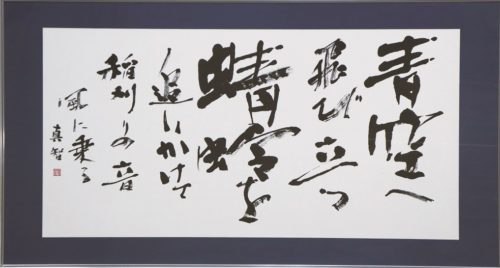 青空へ
飛び立つ
蜻蛉を
追いかけて
稲刈りの音
風に乗る
真智